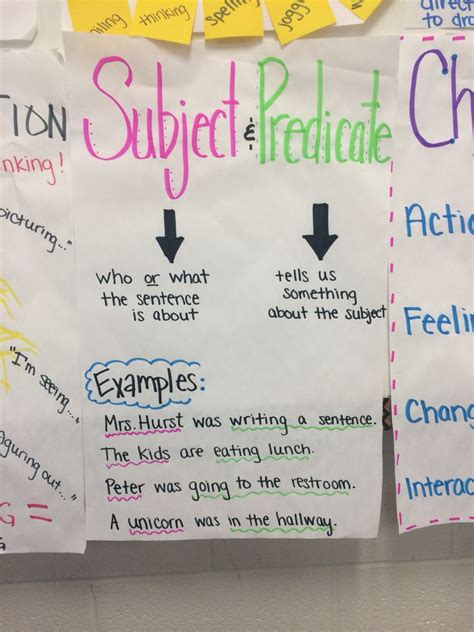 thinking
spelling
jogg
direc
to dra
TION
nking!
picturing..."
"I'm seeing..."
guring out..."
G =
G
Subject & Predicate
who or what
the sentence
is about
tells us
something
about the subject
Examples:
Mrs. Hurst was writing a sentence.
The kids are eating lunch.
Peter was going to the restroom.
A unicorn was in the hallway.
Ch
Actio
Feelin
Chang
Interac